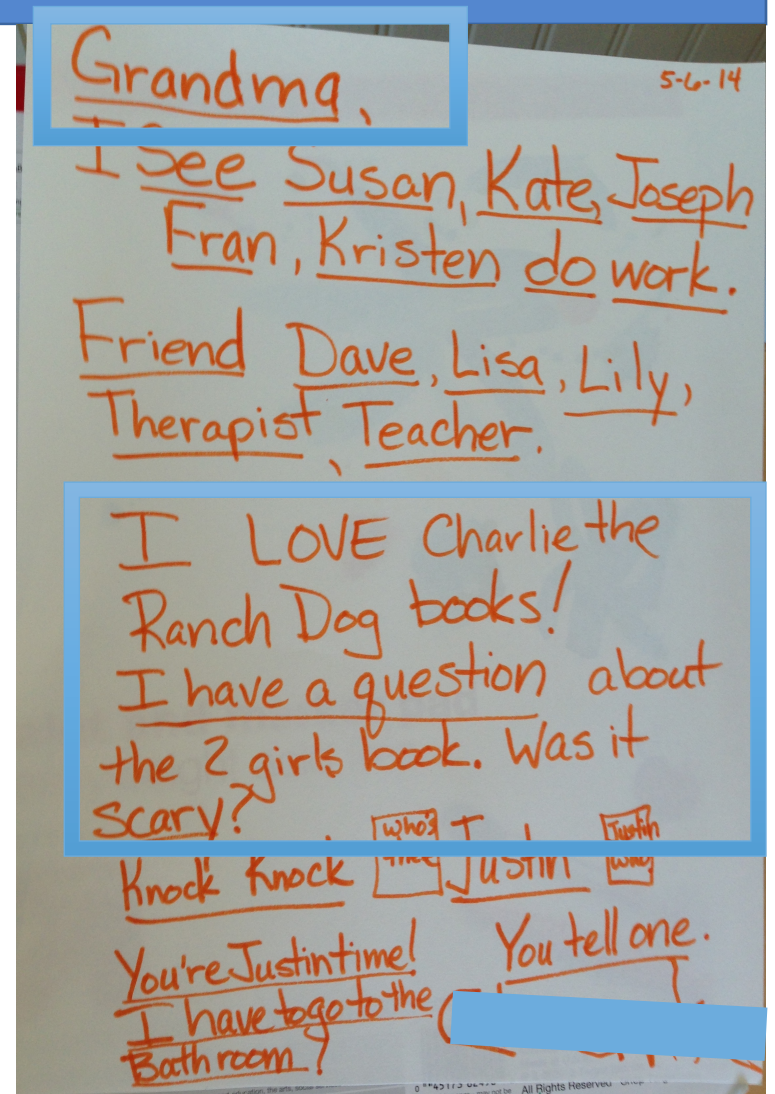 Grandma,
5-6-14
I See Susan, Kate, Joseph
Fran, Kristen do work.
Friend Dave, Lisa, Lily,
Therapist, Teacher.
I LOVE Charlie the
Ranch Dog books!
I have a question about
the 2 girls book. Was it
scary?
Knock Knock Who's there Justin Justin who
You're Justin time! You tell one.
I have to go to the
Bathroom!
All Rights Reserved